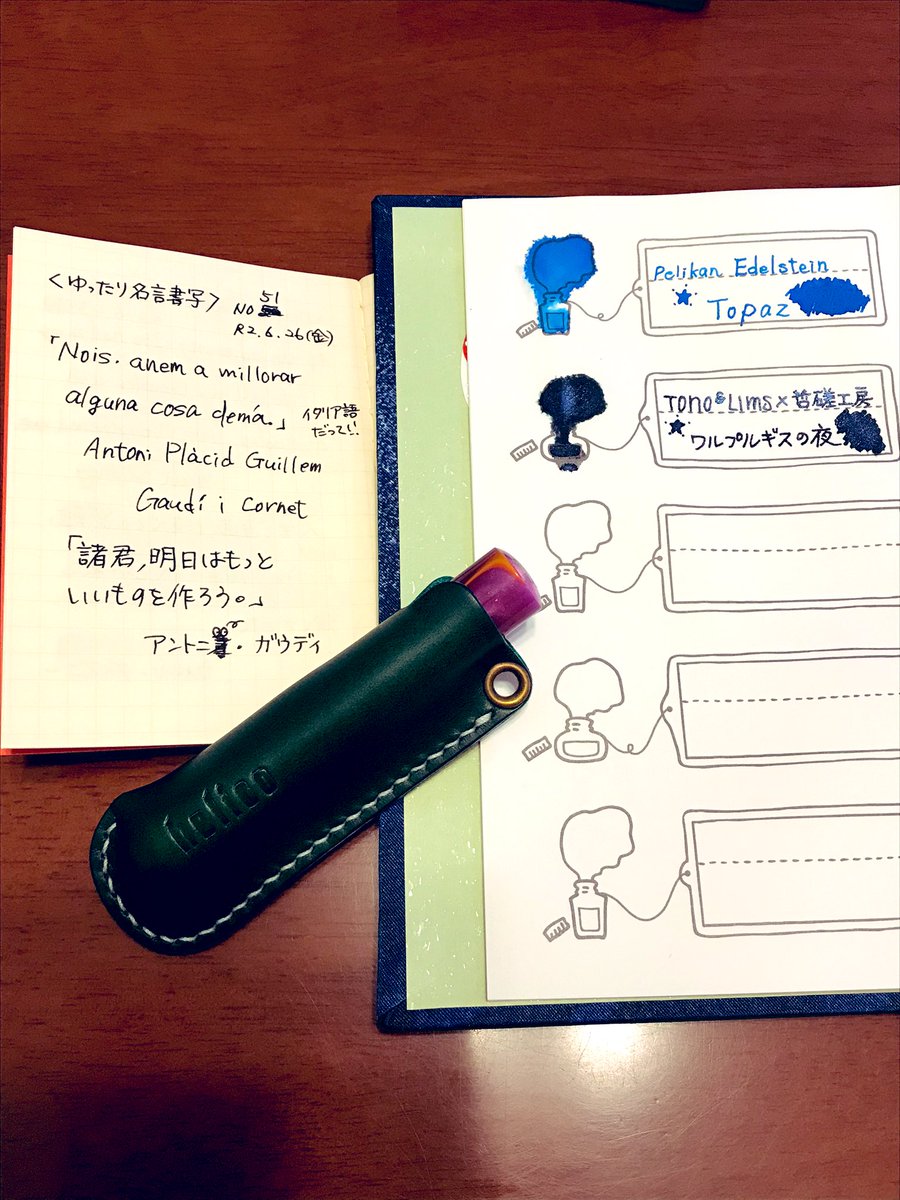 <ゆったり名言書写>
NO 51
R2.6.26(金)
「Nois. anem a millorar
alguna cosa demá.」
イタリア語
だってい!
Antoni Plàcid Guillem
Gaudí i Cornet
「諸君,明日はもっと
いいものを作ろう。」
アントニ・ガウディ
Pelikan Edelstein
Topaz
TONO&LIMS×哲磋工房
ワルプルギスの夜